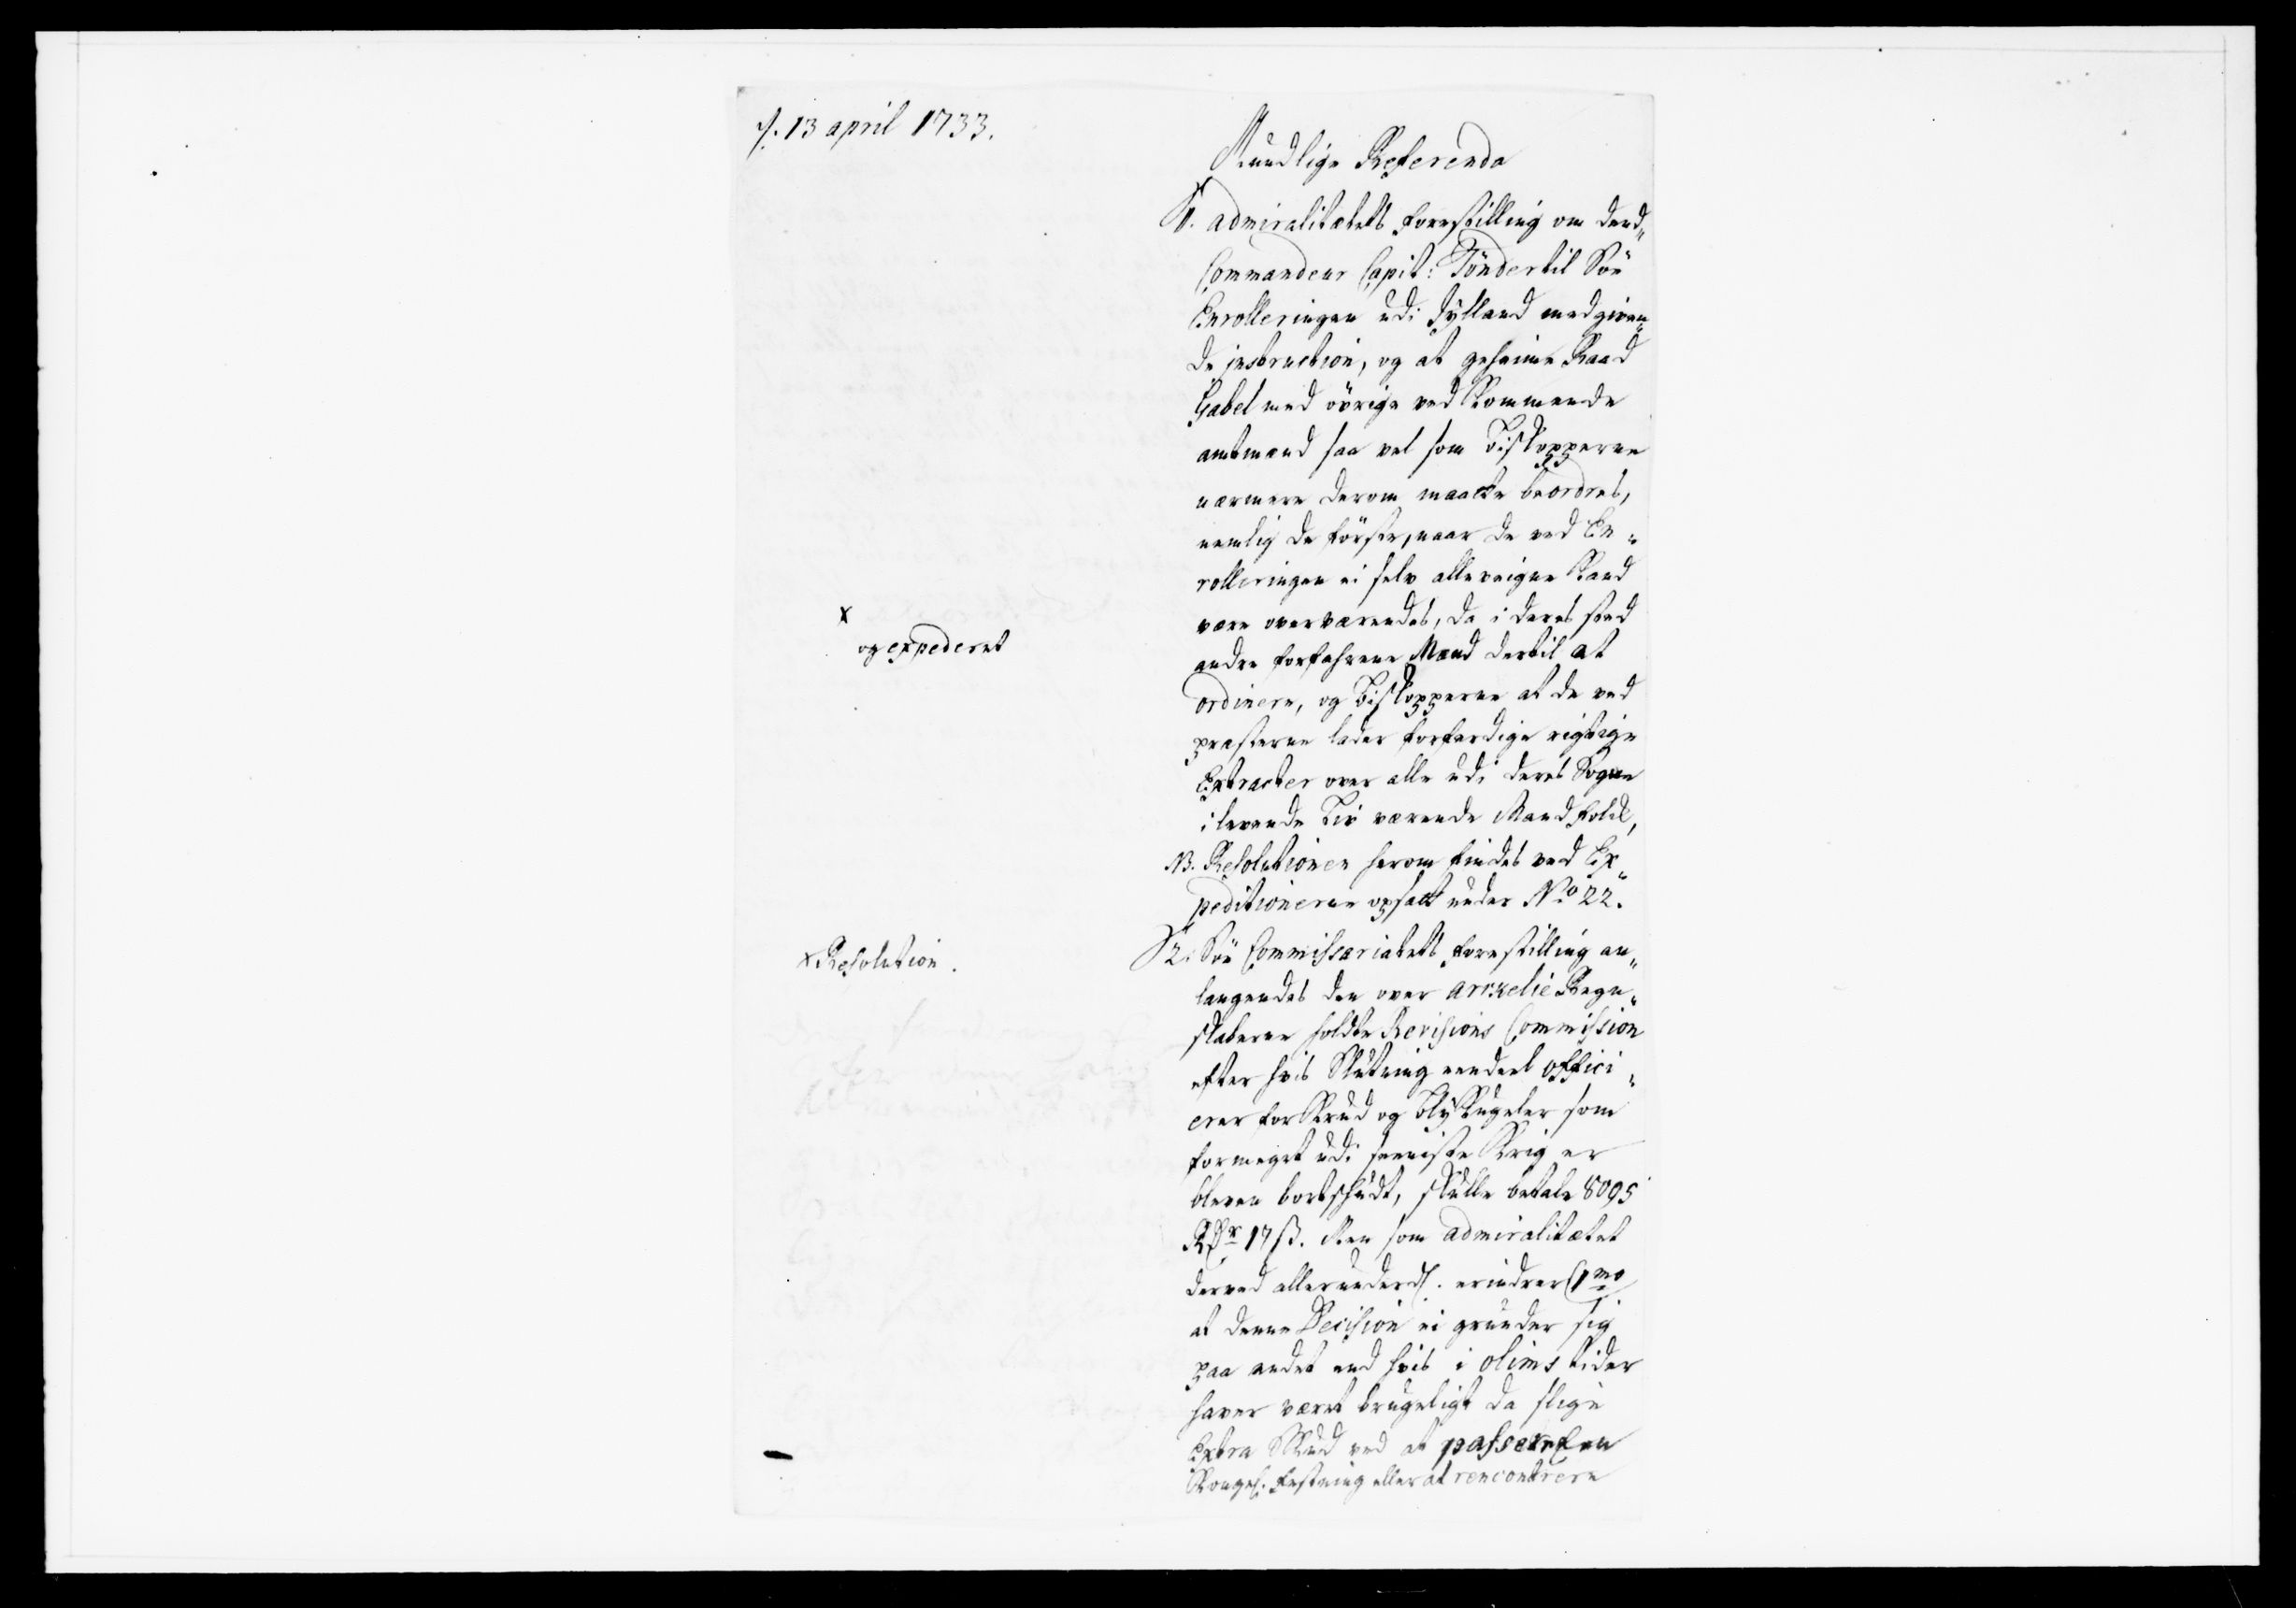 d. 13 april 1733.
Mundlige Referenda
1. admiralitætets forestilling om dend„
Commandeur Capit: Tönder til Söe
Enrolleringen udi Jylland medgiven„
de instruction, og at geheime Raad
Gabel med övrige vedkommende
amtmænd saa vel som Biskopperne
nærmere derom maatte beordres,
nemlig de förste, naar de ved En„
rolleringen ei selv alleveigne kand
være overværendes, da i deres sted
andre forfahrene Mænd dertil at
ordinere, og Biskopperne at de ved
præsterne lader forfærdige rigtige
Extracter over alle udi deres Sogne
i levende Liv værende Mandfolk,
NB. Resolutionen herom findes ved Ex„
peditionerne opsatt under No 22.
x
og expederet
2. Söe Commissariatets forestilling an„
langendes den over arkelie Regn„
skaberne holdte Revisions Commission
efter hvis Slutning eendeel offici„
erer for Krud og Blÿ Kugeler som
formeget udi seeniste Krig er
bleven bortskudt, skulle betale 8095
Rdr 17 ß. Men som admiralitætet
derved allerunderd. erindrer 1mo
at denne Decision ei grunder sig
paa andet end hvis i olims tider
haver været brugeligt da slige
Extra Skud ved at passere en
Kongel. Festning eller at rencontrere
x Resolution.